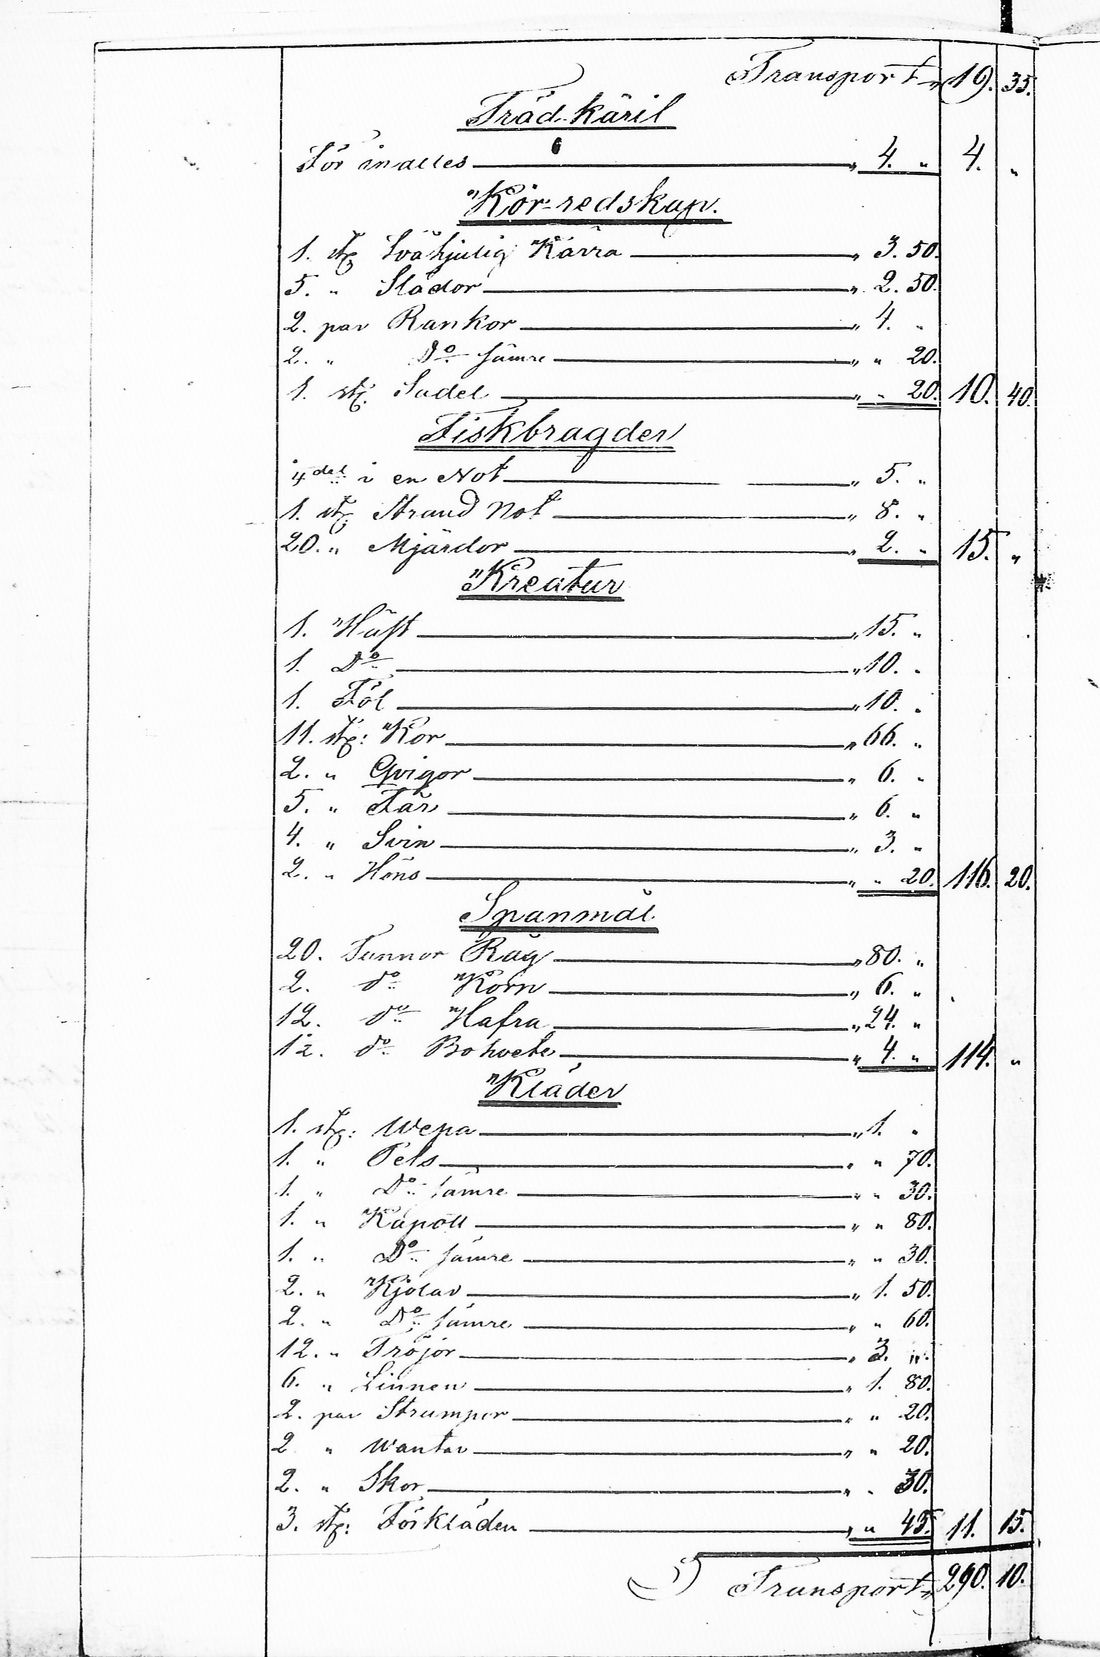 Transport „ 19. 35.
Träd-käril
För inalles „ 4. „ 4. „
Kör-redskap.
1. st. tvåhjulig Kärra „ 3. 50.
5. „ Slädor „ 2. 50.
2. par Rankor „ 4. „
2. „ Do sämre „ „ 20.
1. st. Sadel „ „ 20. 10. 40.
Fiskbragder
4del i en Not „ 5. „
1. st. Strand Not „ 8. „
20. „ Mjärdor „ 2. „ 15. „
Kreatur
1. Häst „ 15. „
1. Do „ 10. „
1. Föl „ 10. „
11. st: Kor „ 66. „
2. „ Qvigor „ 6. „
5. „ Får „ 6. „
4. „ Svin „ 3. „
2. „ Höns „ „ 20. 116. 20.
Spanmål
20. Tunnor Råg „ 80. „
2. do Korn „ 6. „
12. do Hafra „ 24. „
12. do Bohvete „ 4. „ 114. „
Kläder
1. st: Wepa „ 1. „
1. „ Pels „ „ 70.
1. „ Do sämre „ „ 30.
1. „ Kapott „ „ 80.
1. „ Do sämre „ „ 30.
2. „ Kjolar „ 1. 50.
2. „ Do sämre „ „ 60.
12. „ Tröjor „ 3. „
6. „ Linnen „ 1. 80.
2. par Strumpor „ „ 20.
2 „ Wantar „ „ 20.
2. „ Skor „ „ 30.
3. st: Förkläden „ „ 45. 11. 15.
Transport „ 290. 10.